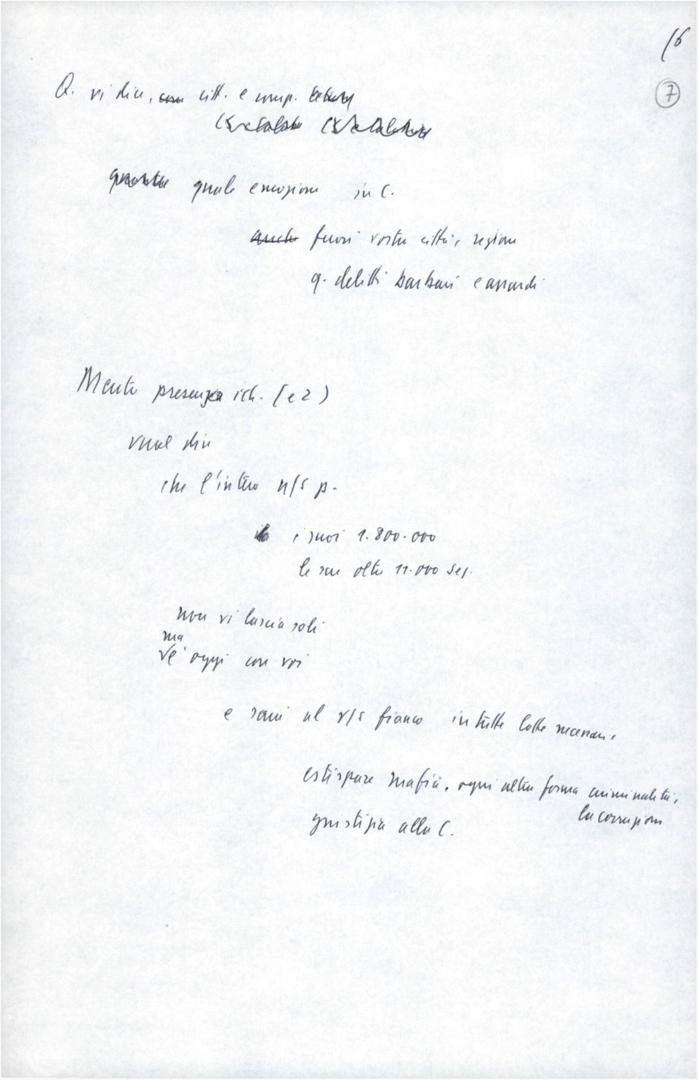 16
7
Q. vi dice, com citt. e comp.
quanta quale emozione in C.
anche fuori vostra città, regione
q. delitti barbari e assurdi
Mentre presenza ich. (e 2)
vuol dire
che l'intero n/s p.
i suoi 1.800.000
le sue oltre 11.000 sez.
non vi lascia soli
ma
è oggi con voi
e sarà al v/s fianco in tutte lotte necessarie
estirpare mafia, ogni altra forma criminalità,
la corruzione
giustizia alla C.